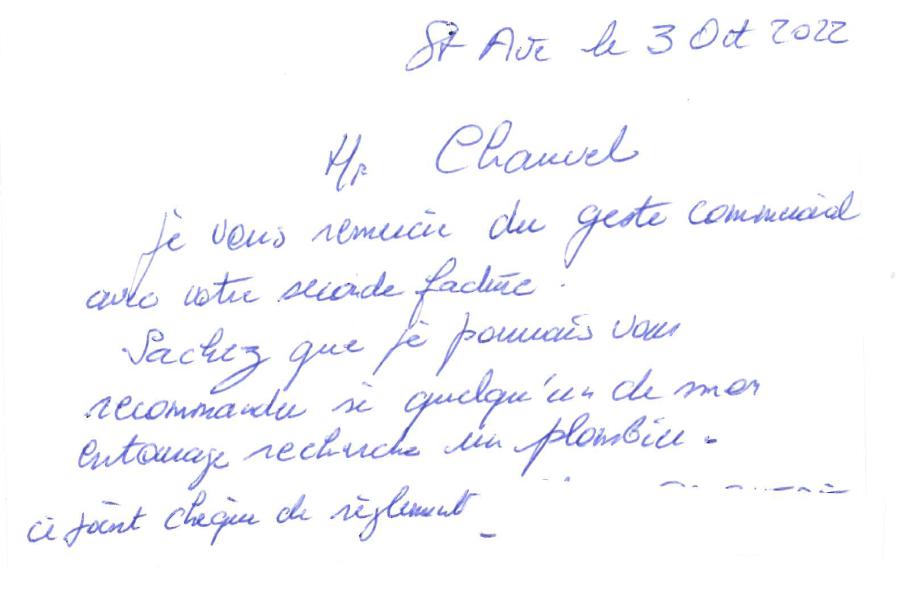 St Avé le 3 Oct 2022
Mr Chauvel
je vous remercie du geste commercial
avec votre seconde facture.
Sachez que je pourrais vous
recommander si quelqu'un de mon
entourage recherche un plombier.
ci joint chèque de règlement